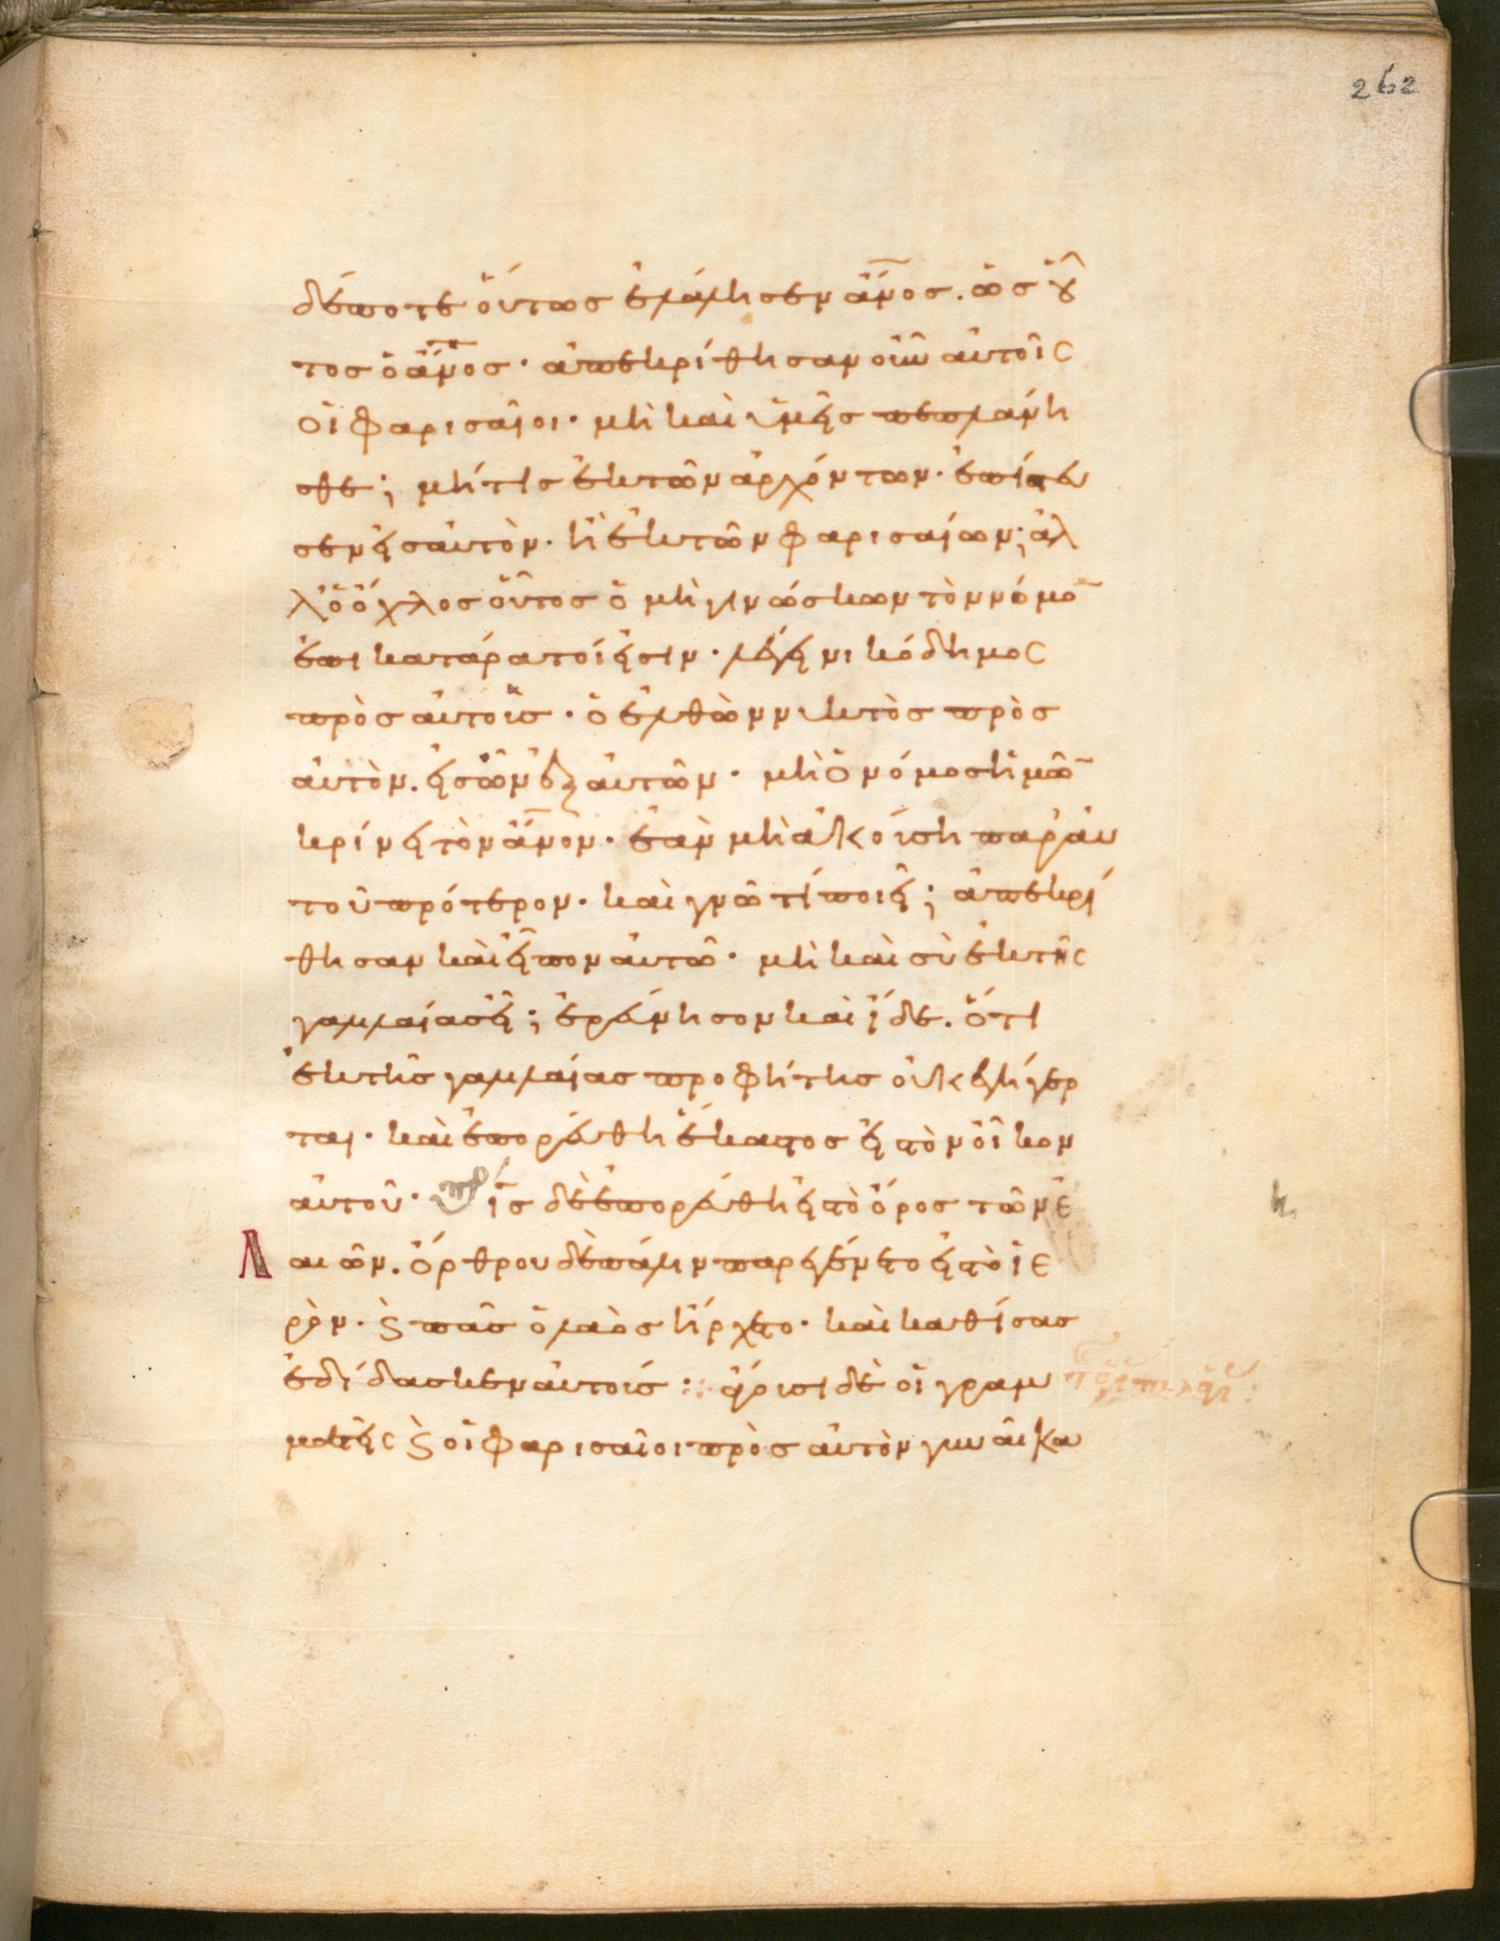 262
δέποτε οὕτως ἐλάλησεν ἄνος. ὡς οὗ
τος ὁ ἄνος· ἀπεκρίθησαν οὖν αὐτοῖς
οἱ φαρισαῖοι· μὴ καὶ ὑμεῖς πεπλάνη
σθε; μήτις ἐκ τῶν ἀρχόντων· ἐπίστευ
σεν εἰς αὐτὸν· ἢ ἐκ τῶν φαρισαίων; ἀλ
λ' ὁ ὄχλος οὗτος ὁ μὴ γινώσκων τὸν νόμο̅
ἐπικατάρατοί εἰσιν· λέγει νικόδημος
πρὸς αὐτούς· ὁ ἐλθὼν νυκτὸς πρὸς
αὐτὸν. εἷς ὢν ἐξ αὐτῶν· μὴ ὁ νόμος ἡμῶ̅
κρίνει τὸν ἄνον· ἐὰν μὴ ἀκούσῃ παρ' αὐ
τοῦ πρότερον· καὶ γνῶ τί ποιεῖ; ἀπεκρί
θησαν καὶ εἶπον αὐτῶ· μὴ καὶ σὺ ἐκ τῆς
γαλιλαίας εἶ; ἐρεύνησον καὶ ἴδε. ὅτι
ἐκ τῆς γαλιλαίας προφήτης οὐκ ἐγήγερ
ται· καὶ ἐπορεύθη ἕκαστος εἰς τὸν οἶκον
αὐτοῦ· ις δὲ ἐπορεύθη εἰς τὸ ὄρος τῶν ἐ
λαιῶν. ὄρθρου δὲ πάλιν παρεγένετο εἰς τὸ ἱε
ρὸν· ϗ πᾶς ὁ λαὸς ἤρχετο· καὶ καθίσας
ἐδίδασκεν αὐτοὺς : φέρουσι δὲ οἱ γραμ
ματεῖς ϗ οἱ φαρισαῖοι πρὸς αὐτὸν γυναῖκα